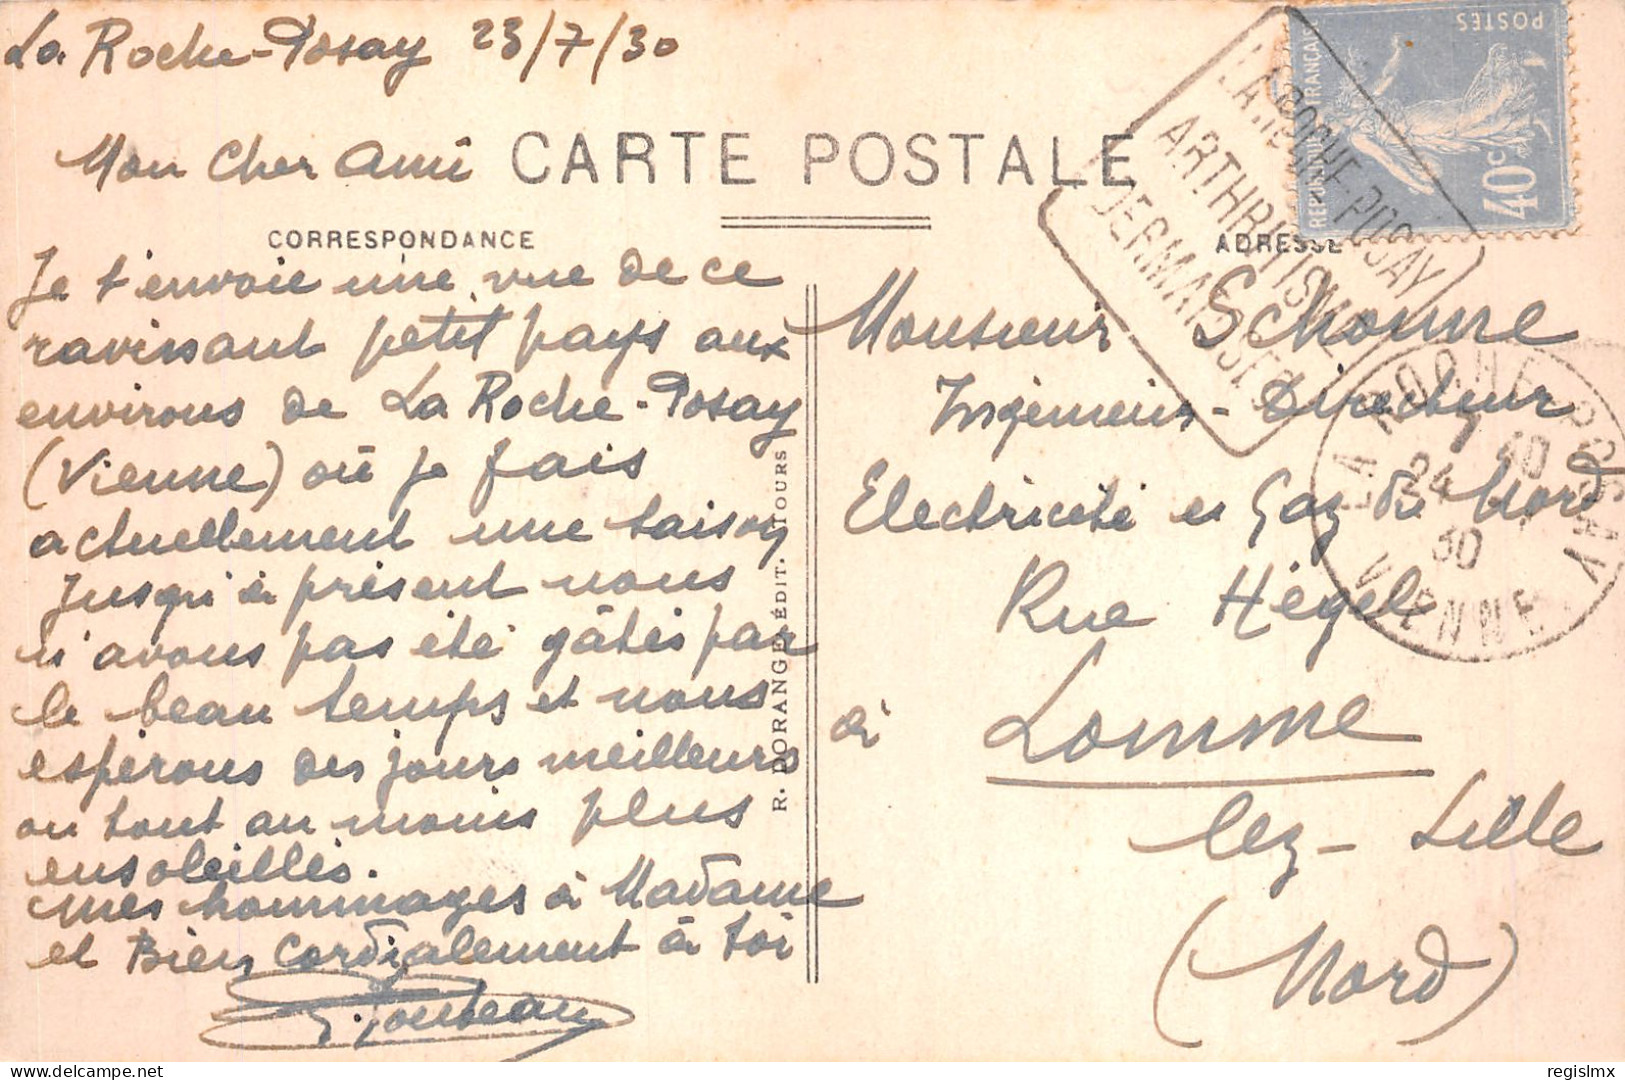 La Roche-Posay 23/7/30
Mon cher ami
CARTE POSTALE
CORRESPONDANCE
Je t'envoie une vue de ce
ravissant petit pays aux
environs de La Roche-Posay
(Vienne) où je fais
actuellement une saison
Jusqu'à présent nous
n'avons pas été gâtés par
le beau temps et nous
espérons des jours meilleurs
ou tout au moins plus
ensoleillés.
mes hommages à Madame
et Bien cordialement à toi
R. DORANGE ÉDIT. TOURS
ADRESSE
Monsieur Schonne
Ingénieur-Directeur
Electricité et Gaz du Nord
Rue Hégel
à Lomme
lez-Lille
(Nord)
POSTES
REPUBLIQUE FRANÇAISE
40c
LA ROCHE-POSAY
ARTHRITISME
DERMATOSES
LA ROCHE POSAY
24
30
VIENNE
Delcampe.net
regislmx